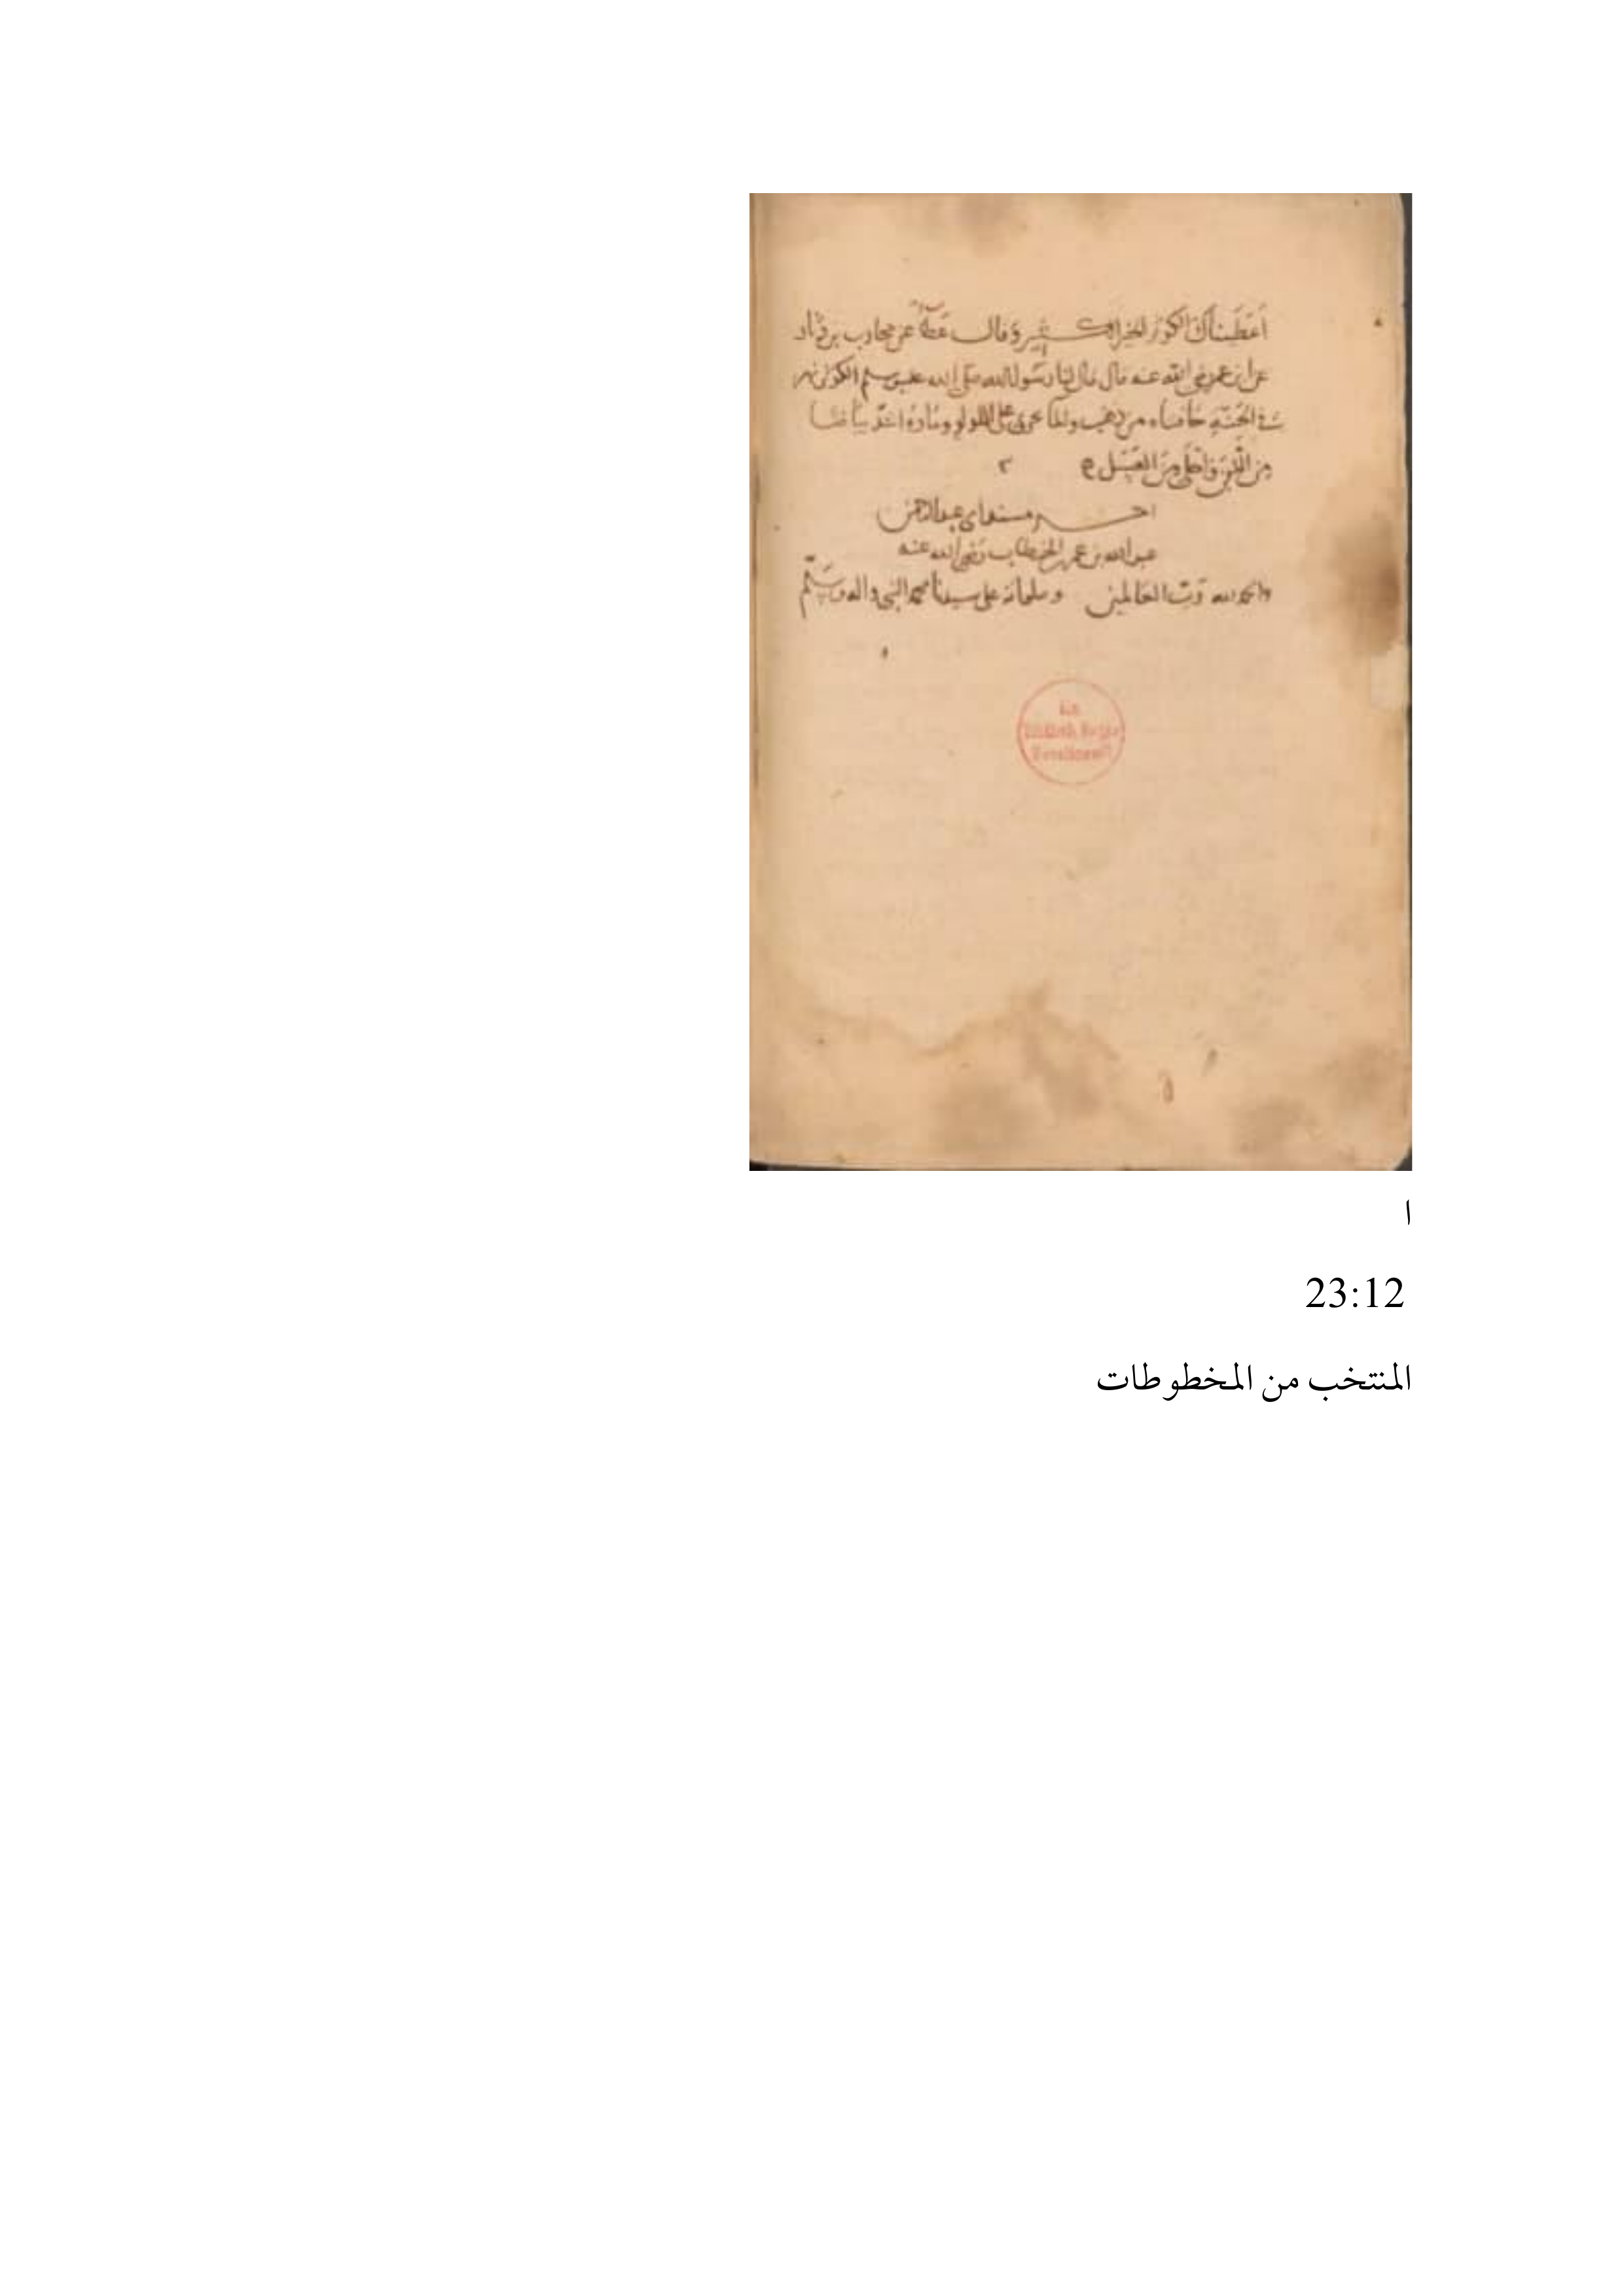 أعطيناك الكوثر الخير الكثير وقال عطاء عن محارب بن دثار
عن ابن عمر رضي الله عنه قال قال لنا رسول الله صلى الله عليه وسلم الكوثر نهر
في الجنة حافتاه من ذهب والماء يجري على اللولو وماؤه اشد بياضا
من اللبن واحلى من العسل
اخر مسند ابي عبد الرحمن
عبد الله بن عمر بن الخطاب رضي الله عنه
والحمد لله رب العالمين وصلواته على سيدنا محمد النبي واله وسلم
ا
23:12
المنتخب من المخطوطات